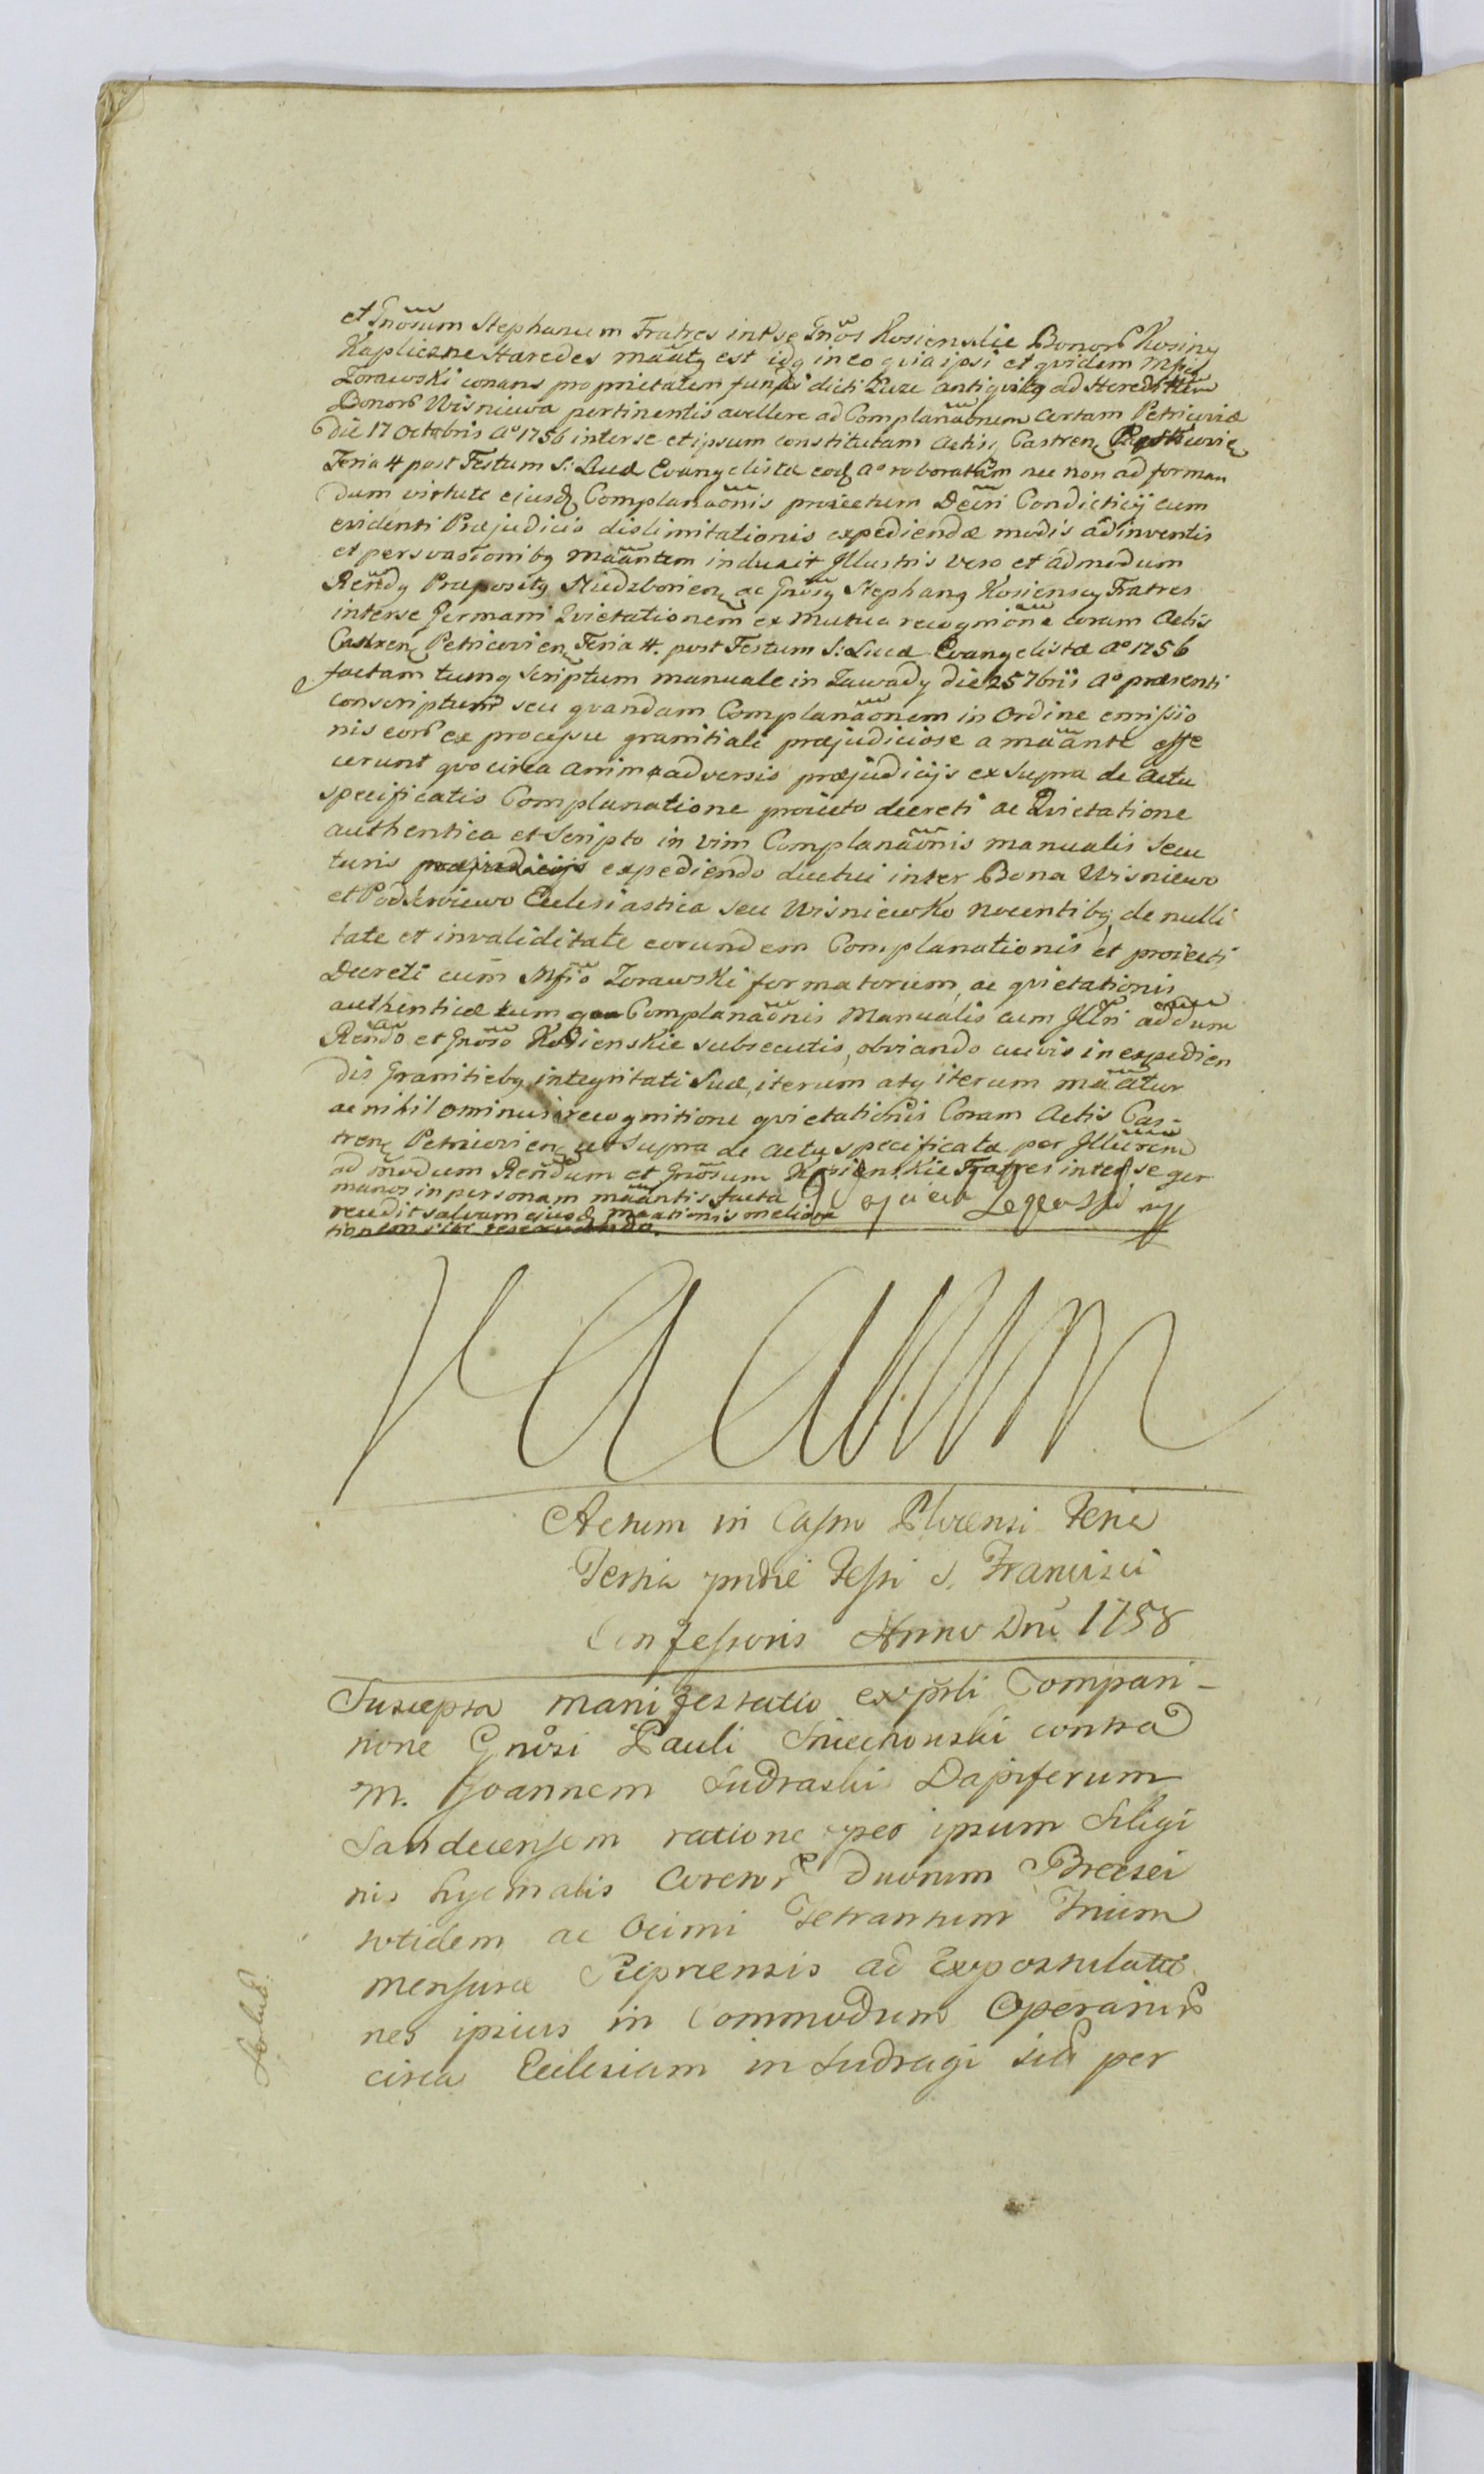 et Gnosum Stephanum Fratres interse Gnos Kosienskie Bonorum Kosiny
Kapliczne Haeredes maatg est idq in eo quia ipsi et quidem Mfcg
Zorawski conans proprietatem fundi dicti antiquitg ad Haereditem
Bonorum Wisniewa pertinentis avellere ad Complanaonem certam Petricoviae
die 17 Octobris Ao 1756 interse et ipsum constitutam Actis Castren
Feria 4 post Festum S: Lucae Evangelistae eod Ao roboratam nec non ad forman
dum virtute ejusd Complanaonis proiectum Decri Condictitij cum
evidenti Praejudicio dislimitationis expediendae modis adinventis
et persvasionibg maantem induxit Illustris vero et admodum
Rendg Praepositg Niedzborien ac Gnosg Stephang Kosienscy Fratres
interse Germani Qvietationem ex mutua recognione coram Actis
Castren Petricovien Feria 4. post Festum S: Lucae Evangelistae Ao 1756
factam tumq scriptum manuale in Zawady die 25 7bris Ao praesenti
conscriptum seu qvandam Complanaonem in Ordine emissio
nis eorum ex processu granitiali praejudiciose a maante effe
cerunt qvocirca animadversis praejudicijs ex supra de Actu
specificatis Complanatione proiecto decreti ac Qvietatione
authentica et Scripto in vim Complanaonis manualis secu
turis praejudicijs expediendo ductui inter Bona Wisniewo
et Ecclesiastica seu Wisniewko nocentibg, de nulli
tate et invaliditate eorundem Complanationis et proiecti
Decreti cum Mfco Zorawski formatorum, ac qvietationis
authenticae tum Complanaonis Manualis cum Illri addum
Rendo et Gnoso Kosienskie subsecutis, obviando cuivis in expedien
dis Granitiebg integritati suae, iterum atq iterum maatur
ac nihilominus recognitione qvietationis Coram Actis Cas-
tren Petricovien ut supra de actu specificata per Illurem
ad modum Rendum et Gnosum Kosienskie Fratres interse ger
manos in personam maantis facta
recedit salvam ejusd maationis meliora
tionem sibi reservando.
Actum in Castro Plocensi Feria
Tertia pridie Festi S. Francisci
Confessoris Anno Dni 1758
Suscepta manifestatio ex prsli Compari-
tione Gnosi Pauli Sniechowski contra
M. Joannem Sudraski Dapiferum
Sandecensem ratione per ipsum Siligi
nis hyemalis Coretor duorum Breczei
totidem ac Ocimi Tetrantum Trium
mensurae Rypnensis ad Expostulatio
nes ipsius in Commodum Operarior
circa Ecclesiam in Sudragi sib per